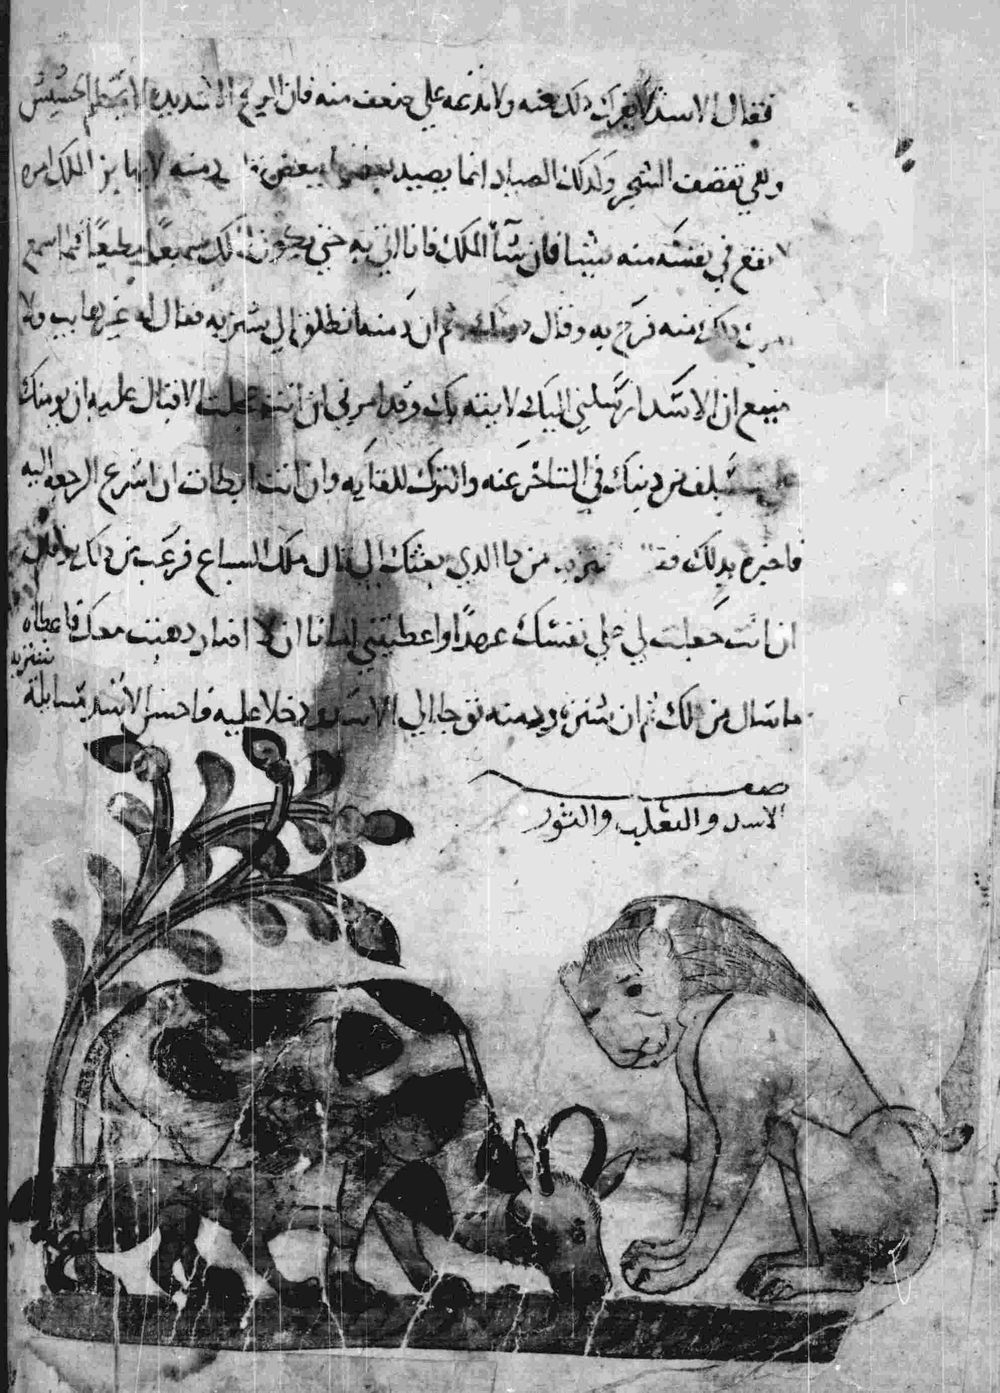 فقال الاسد لا يغرنك ذلك منه ولا تدعه علي ضعف منه فان الريح الشديده لا تحطم الحشيش
وهي تقصف الشجر وكذلك الصياد انما يصيد بعضها ببعض دمنه لا يهابن الملك امره
لا يقع في نفسه منه شيئا فان شآ الملك فانا اتيه به حتي يكون لك سميعا مطيعا فلما سمع
ذلك منه فرح به وقال دونك ثم ان دمنه انطلق الي شنزبه فقال له غير هايب ولا
متتعتع ان الاسد ارسلني اليك لاتيه بك وقد امرني ان انت عجلت الاقبال عليه ان يومنك
علي سلف من دينك في التاخر عنه والترك للقايه وان انت ابطات ان اسرع الرجعه اليه
فاخبره بذلك شنزبه من ذا الذي بعثك الي قال ملك السباع فرعب من ذلك وقال
ان انت جعلت لي علي نفسك عهدا واعطيتني امانا ان لا اضار ذهبت معك فاعطاه
شنزبه
ما سال من ذلك ثم ان شنزبه ودمنه توجها الي الاسد ودخلا عليه فاحسن الاسد مسايلة
صفـــــة
الاسد والثعلب والثور